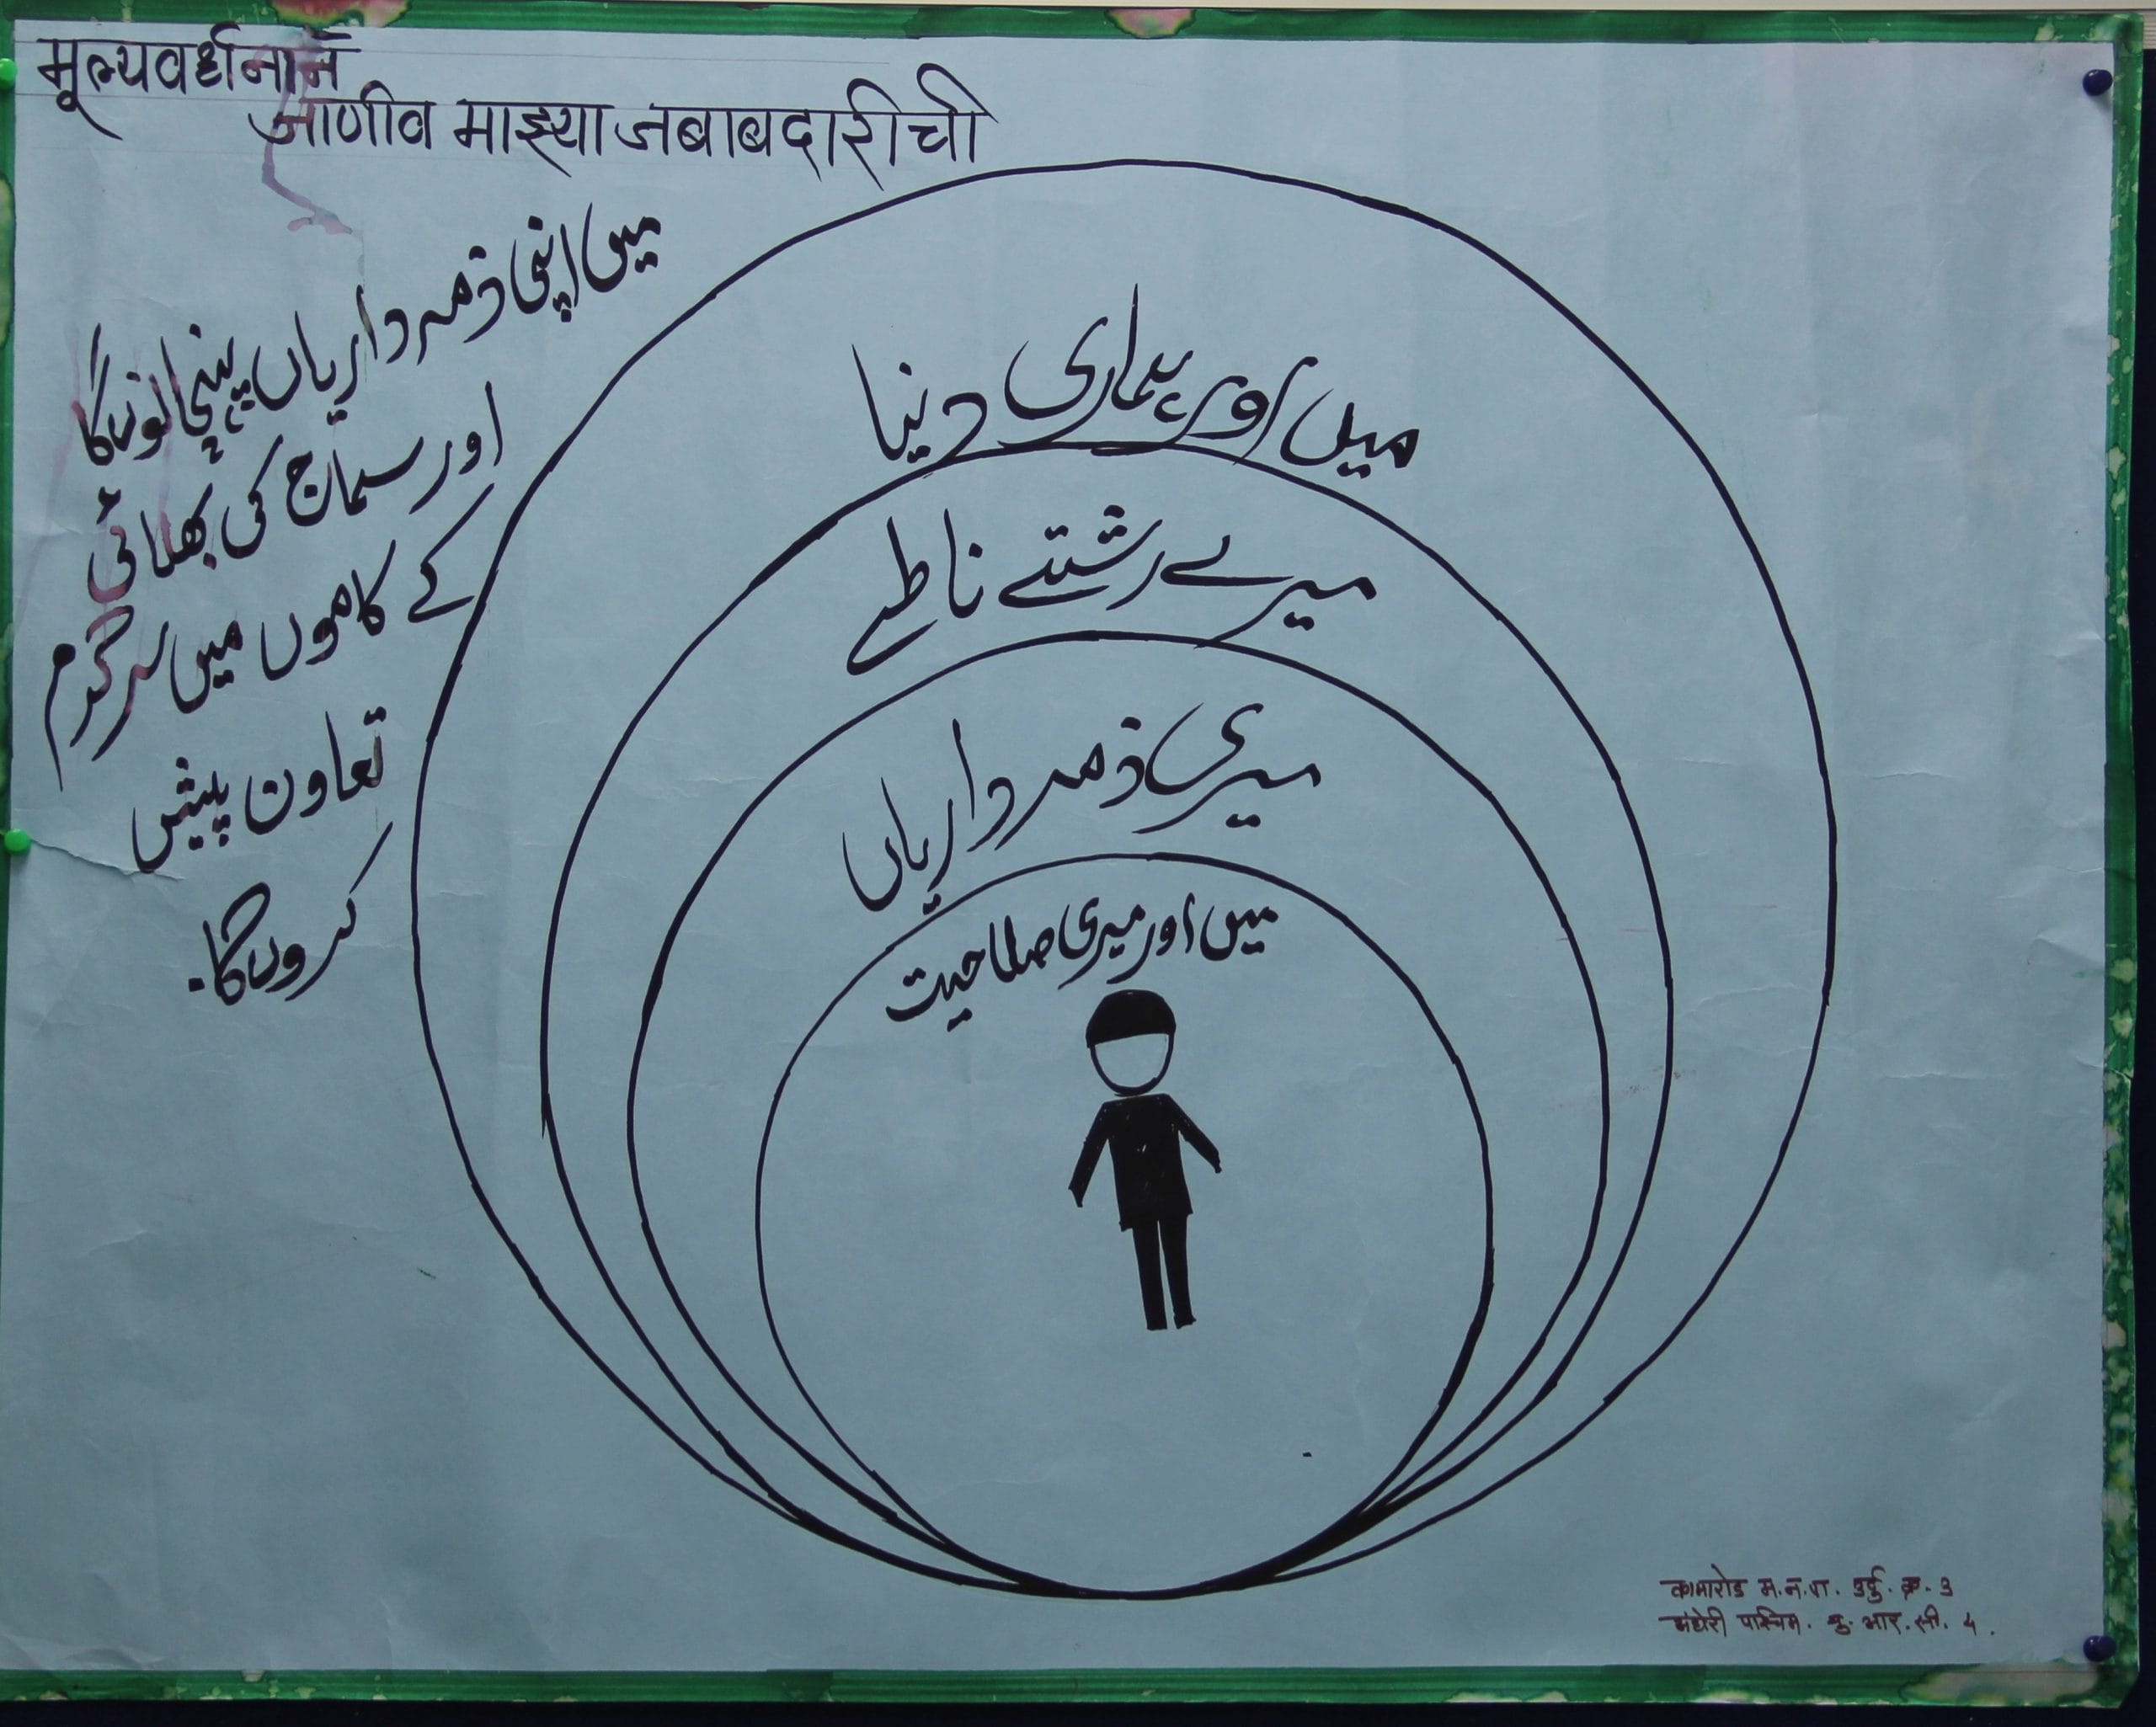 मूल्यवर्धनाने
जाणीव माझ्या जबाबदारीची
میں اپنی ذمہ داریاں پہنچانوں گا
اور سماج کی بھلائی
کے کاموں میں سرگرم
تعاون پیش
کروں گا.
میں اور ہماری دنیا
میرے رشتے ناطے
میری ذمہ داریاں
میں اور میری صلاحیت
कामारोड म.न.पा. उर्दु. क्र. 3
अंधेरी पश्चिम. यु. आर. सी. 4.